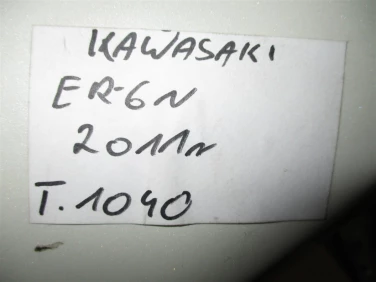 KAWASAKI
ER-6N
2011r
T.1040